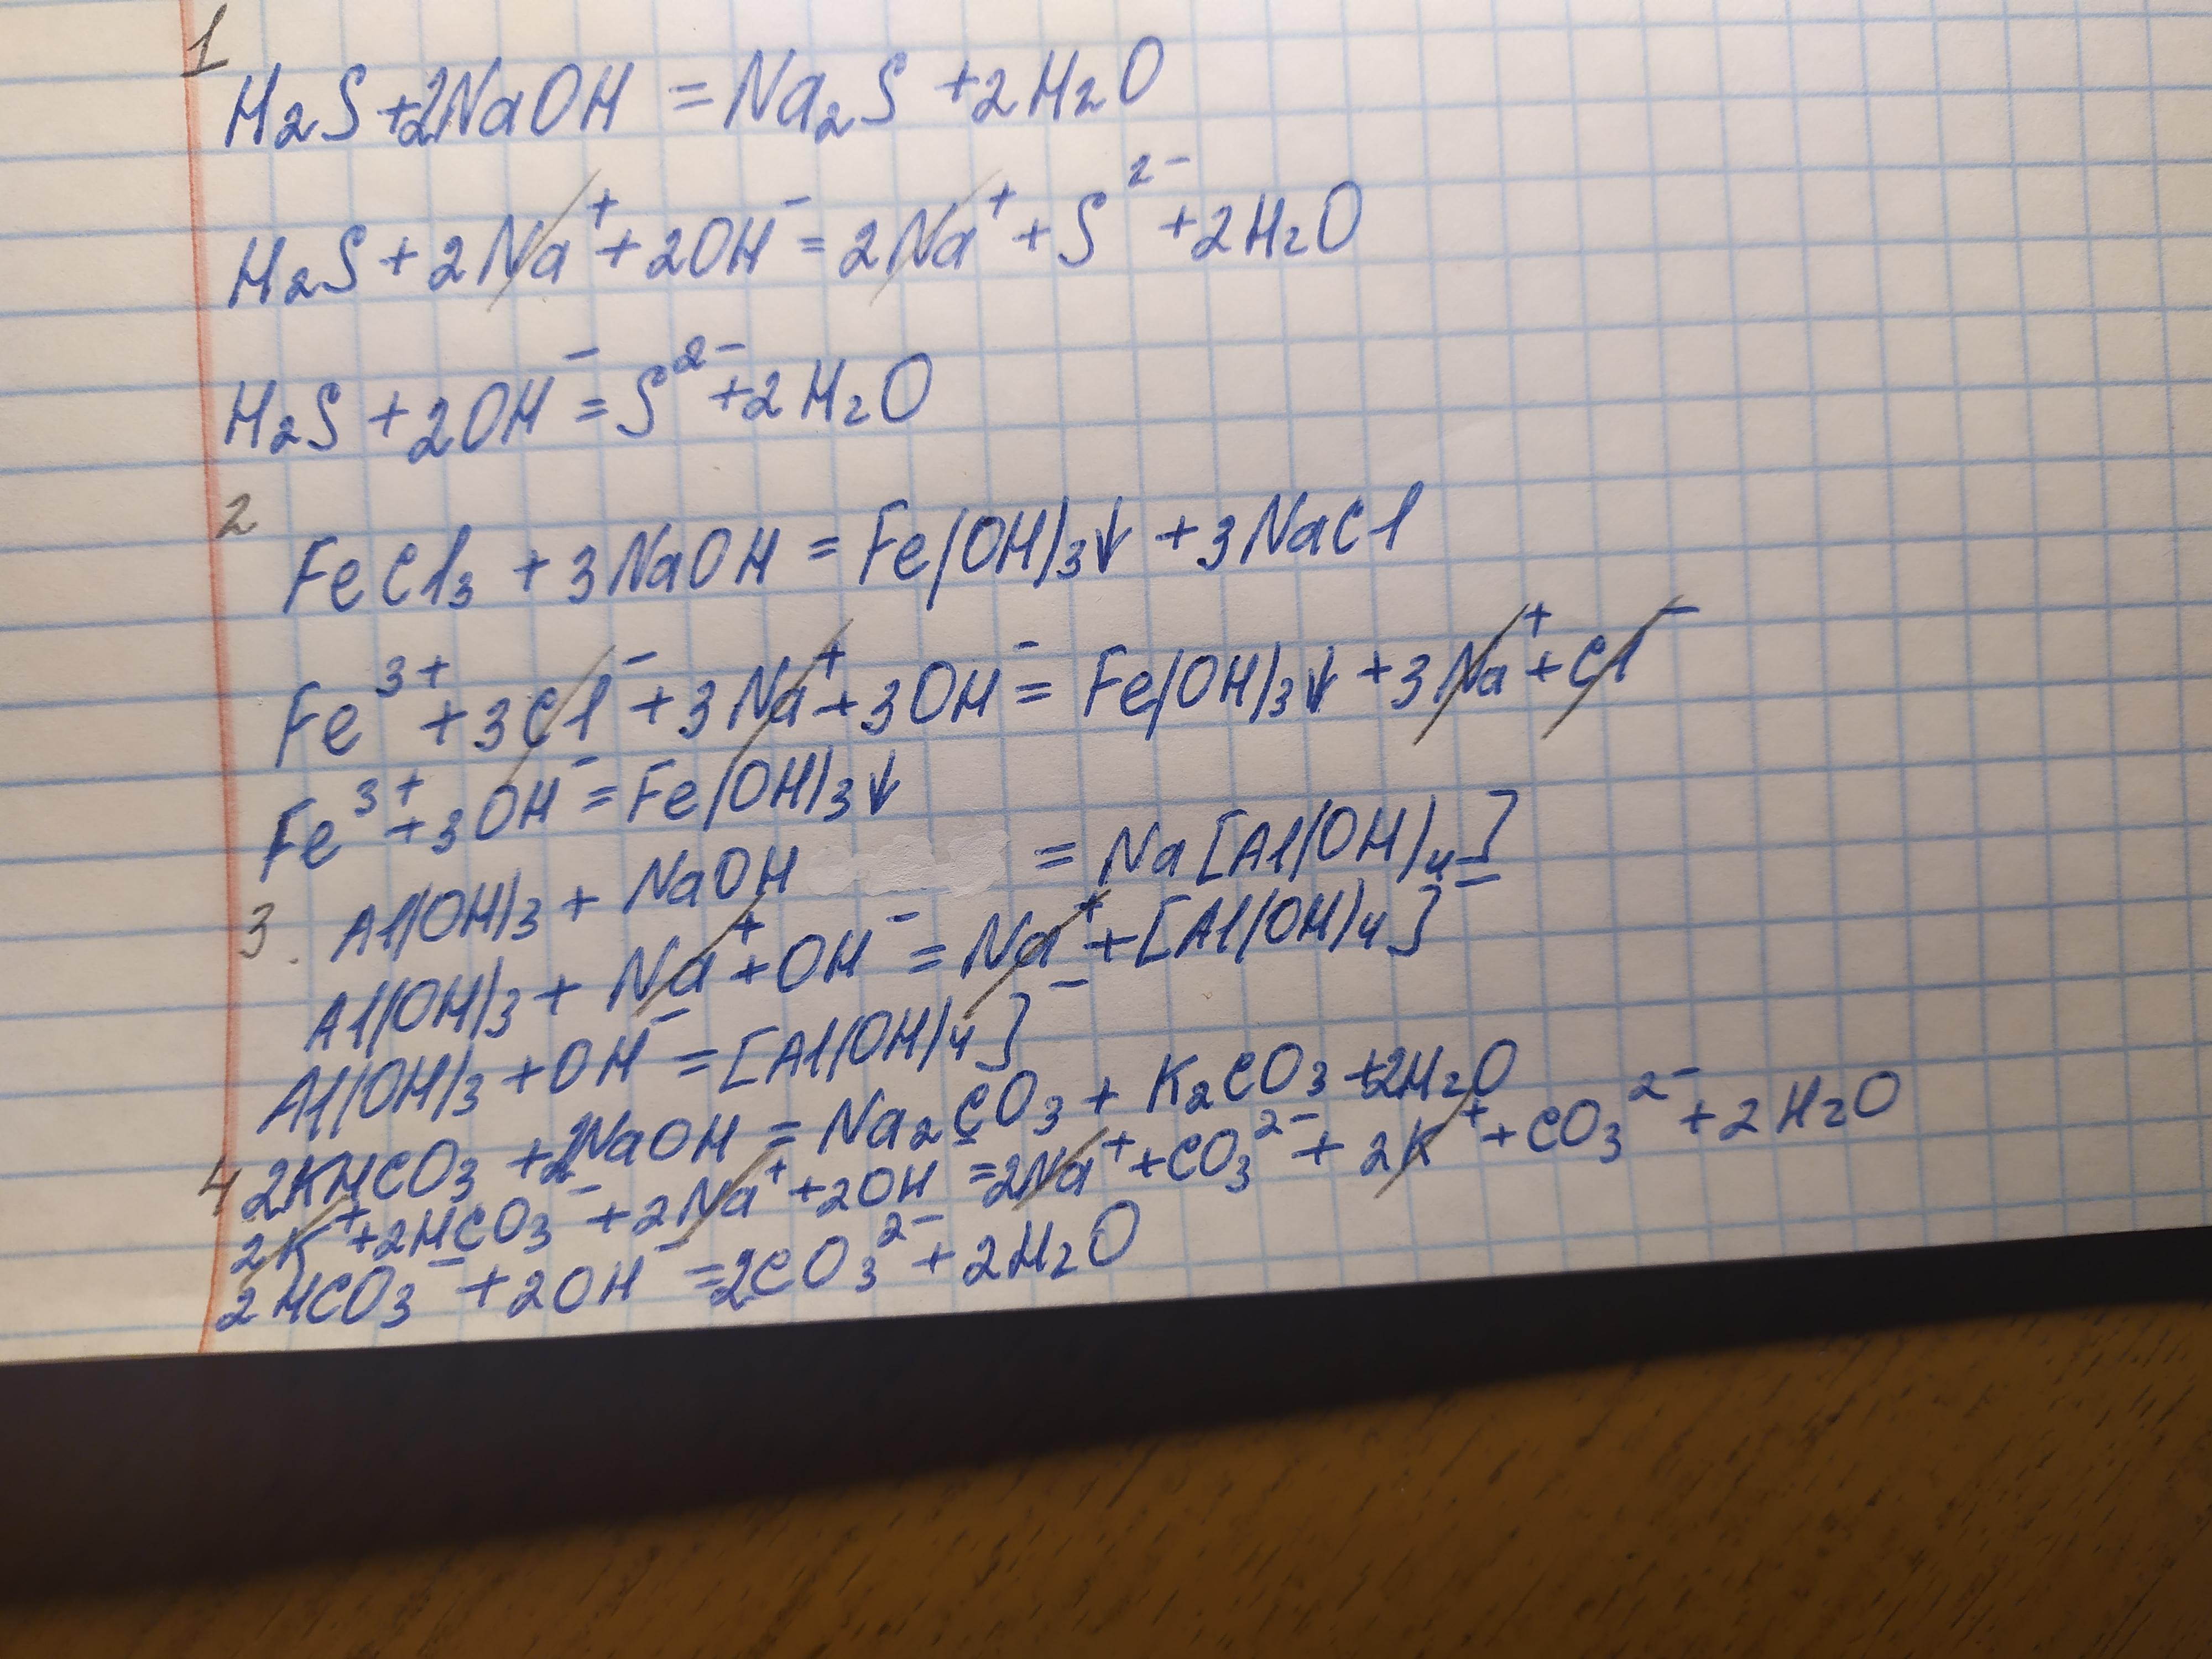 1
H₂S + 2NaOH = Na₂S + 2H₂O
H₂S + 2Na⁺ + 2OH⁻ = 2Na⁺ + S²⁻ + 2H₂O
H₂S + 2OH⁻ = S²⁻ + 2H₂O
2
FeCl₃ + 3NaOH = Fe(OH)₃↓ + 3NaCl
Fe³⁺ + 3Cl⁻ + 3Na⁺ + 3OH⁻ = Fe(OH)₃↓ + 3Na⁺ + Cl⁻
Fe³⁺ + 3OH⁻ = Fe(OH)₃↓
3. Al(OH)₃ + NaOH = Na[Al(OH)₄]
Al(OH)₃ + Na⁺ + OH⁻ = Na⁺ + [Al(OH)₄]⁻
Al(OH)₃ + OH⁻ = [Al(OH)₄]⁻
4 2KHCO₃ + 2NaOH = Na₂CO₃ + K₂CO₃ + 2H₂O
2K⁺ + 2HCO₃⁻ + 2Na⁺ + 2OH⁻ = 2Na⁺ + CO₃²⁻ + 2K⁺ + CO₃²⁻ + 2H₂O
2HCO₃⁻ + 2OH⁻ = 2CO₃²⁻ + 2H₂O